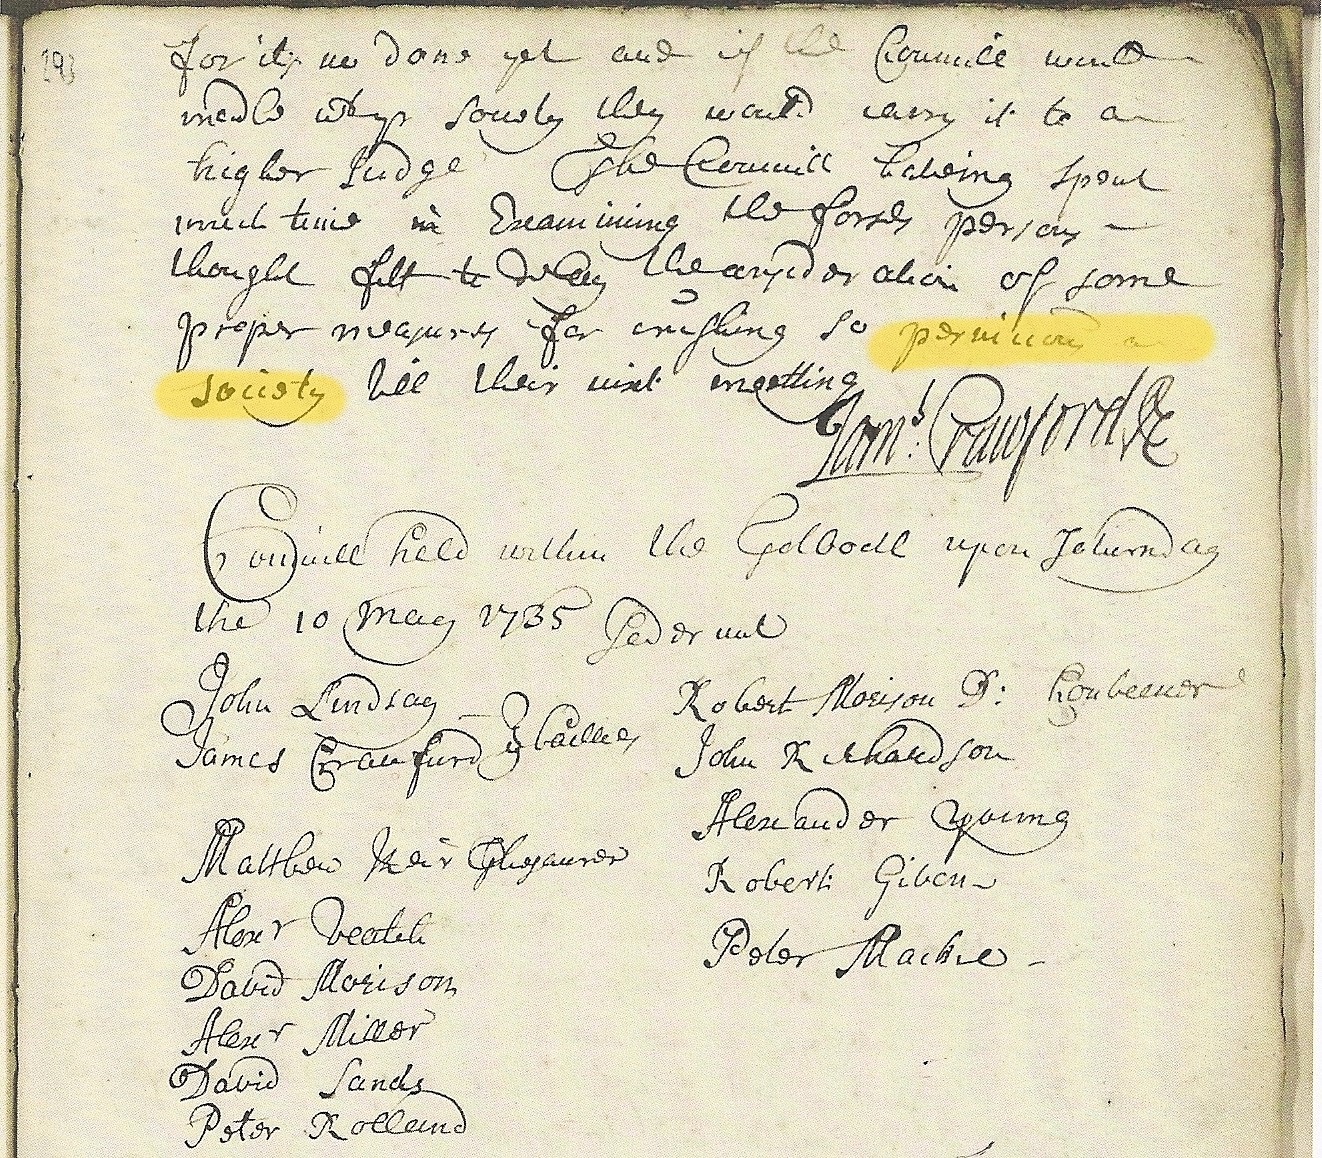 293
for its no done yet and if the Councill would
medle wt yr society they would carry it to a
higher Judge The Councill haveing spent
much time in Examining the forsds persons
thought fitt to delay the consideration of some
proper measures for crushing so pernicious a
society till their nixt meetting
Jams: Crawford
Councill held within the Tolbooth upon Saturnday
the 10 May 1735 Sederunt
John Lindsay
James Craufurd } bailies
Matthew Keir Thesaurer
Alexr Veatch
David Morison
Alexr Miller
David Sands
Peter Rolland
Robert Morison D: Conveener
John Richardson
Alexander Young
Robert Giben
Peter Mackie